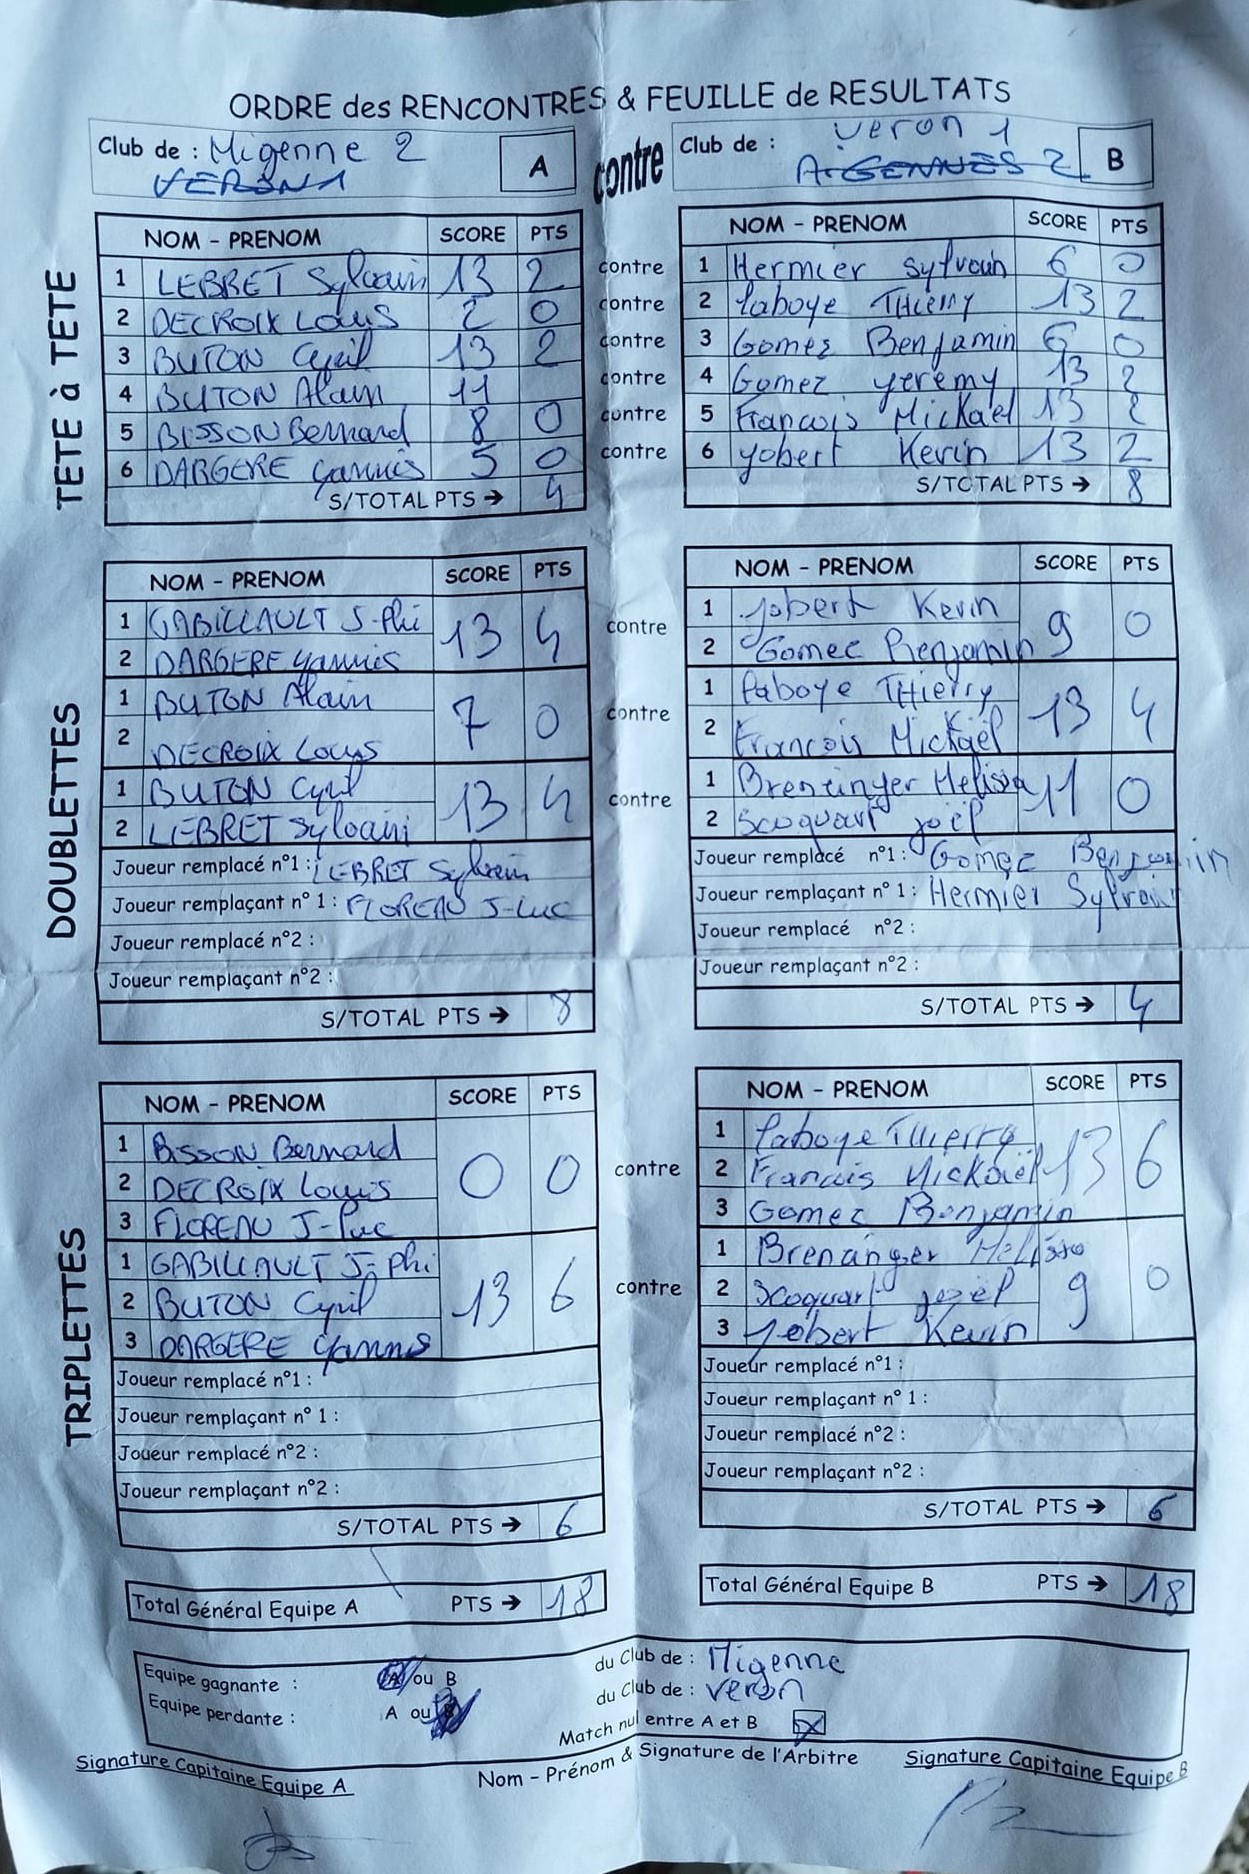 ORDRE des RENCONTRES & FEUILLE de RESULTATS
Club de : Migenne 2 A contre Club de : Veron 1 B
VERON 1 A-GENNES 2
TETE à TETE
NOM - PRENOM SCORE PTS NOM - PRENOM SCORE PTS
1 LEBRET Sylvain 13 2 contre 1 Hermier Sylvain 6 0
2 DECROIX Louis 2 0 contre 2 Laboye THierry 13 2
3 BUTON Cyril 13 2 contre 3 Gomez Benjamin 6 0
4 BUTON Alain 11 contre 4 Gomez Yeremy 13 2
5 BISSON Bernard 8 0 contre 5 Francois Mickaël 13 2
6 DARGERE Yannis 5 0 contre 6 Yobert Kevin 13 2
S/TOTAL PTS → 4 S/TOTAL PTS → 8
DOUBLETTES
NOM - PRENOM SCORE PTS NOM - PRENOM SCORE PTS
1 GABILLAULT J-Phi 13 4 contre 1 Jobert Kevin 9 0
2 DARGERE Yannis 2 Gomez Benjamin
1 BUTON Alain 7 0 contre 1 Laboye THierry 13 4
2 DECROIX Louis 2 Francois Mickaël
1 BUTON Cyril 13 4 contre 1 Breninger Melissa 11 0
2 LEBRET Sylvain 2 Scoquart joël
Joueur remplacé n°1 : LEBRET Sylvain Joueur remplacé n°1 : Gomez Benjamin
Joueur remplaçant n° 1 : FLOREAU J-Luc Joueur remplaçant n° 1 : Hermier Sylvain
Joueur remplacé n°2 : Joueur remplacé n°2 :
Joueur remplaçant n°2 : Joueur remplaçant n°2 :
S/TOTAL PTS → 8 S/TOTAL PTS → 4
TRIPLETTES
NOM - PRENOM SCORE PTS NOM - PRENOM SCORE PTS
1 BISSON Bernard 0 0 contre 1 Laboye THierry 13 6
2 DECROIX Louis 2 Francois Mickaël
3 FLOREAU J-Luc 3 Gomez Benjamin
1 GABILLAULT J-Phi 13 6 contre 1 Brenanger Melissa 9 0
2 BUTON Cyril 2 Scoquart joël
3 DARGERE Yannis 3 Yobert Kevin
Joueur remplacé n°1 : Joueur remplacé n°1 :
Joueur remplaçant n° 1 : Joueur remplaçant n° 1 :
Joueur remplacé n°2 : Joueur remplacé n°2 :
Joueur remplaçant n°2 : Joueur remplaçant n°2 :
S/TOTAL PTS → 6 S/TOTAL PTS → 6
Total Général Equipe A PTS → 18 Total Général Equipe B PTS → 18
Equipe gagnante : A ou B du Club de : Migenne
Equipe perdante : A ou B du Club de : Veron
Match nul entre A et B X
Signature Capitaine Equipe A Nom - Prénom & Signature de l'Arbitre Signature Capitaine Equipe B